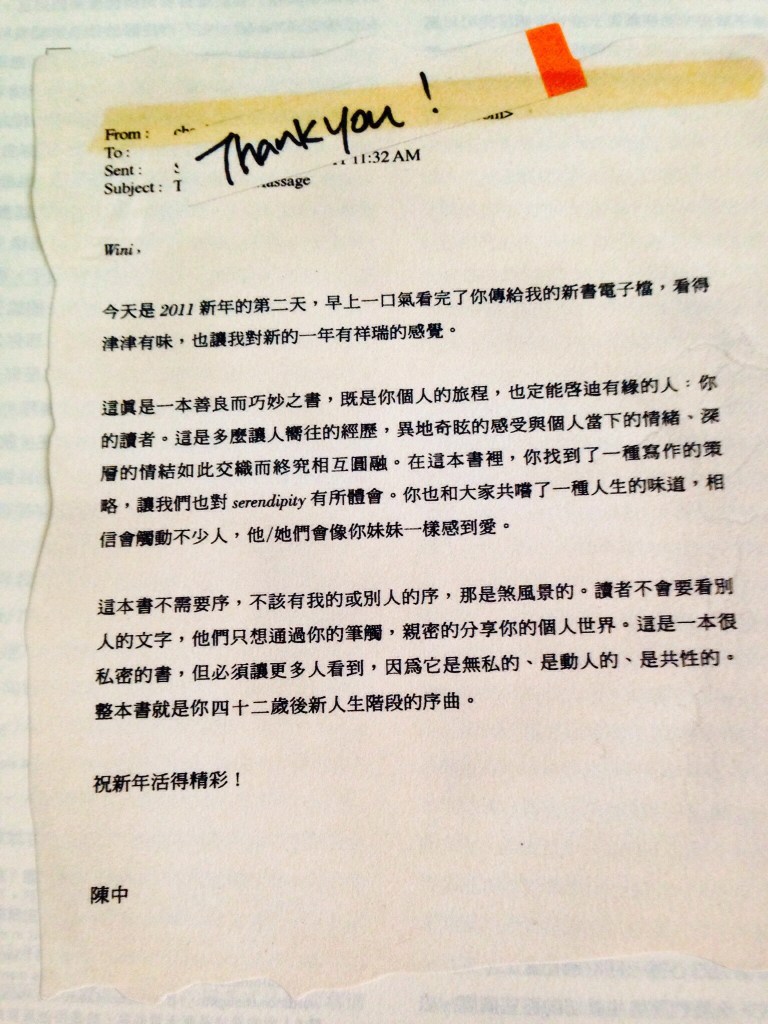 Thank you!
From :
To :
Sent : 11:32 AM
Subject : T assage
Wini，
今天是 2011 新年的第二天，早上一口氣看完了你傳給我的新書電子檔，看得
津津有味，也讓我對新的一年有祥瑞的感覺。
這眞是一本善良而巧妙之書，既是你個人的旅程，也定能啓迪有緣的人：你
的讀者。這是多麼讓人嚮往的經歷，異地奇眩的感受與個人當下的情緒、深
層的情結如此交織而終究相互圓融。在這本書裡，你找到了一種寫作的策
略，讓我們也對 serendipity 有所體會。你也和大家共嚐了一種人生的味道，相
信會觸動不少人，他/她們會像你妹妹一樣感到愛。
這本書不需要序，不該有我的或別人的序，那是煞風景的。讀者不會要看別
人的文字，他們只想通過你的筆觸，親密的分享你的個人世界。這是一本很
私密的書，但必須讓更多人看到，因爲它是無私的、是動人的、是共性的。
整本書就是你四十二歲後新人生階段的序曲。
祝新年活得精彩！
陳中